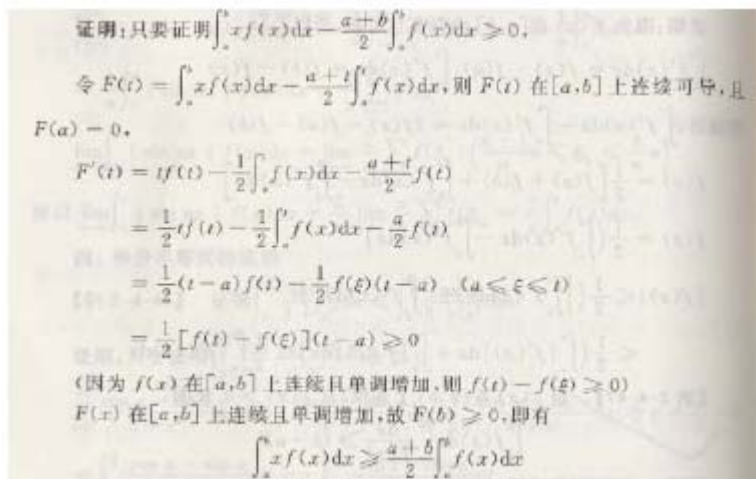 证明:只要证明∫ₐᵇ xf(x)dx − (a+b)/2 ∫ₐᵇ f(x)dx ≥ 0,
令 F(t) = ∫ₐᵗ xf(x)dx − (a+t)/2 ∫ₐᵗ f(x)dx,则 F(t) 在[a,b]上连续可导,且
F(a) = 0,
F′(t) = tf(t) − 1/2 ∫ₐᵗ f(x)dx − (a+t)/2 f(t)
= 1/2 tf(t) − 1/2 ∫ₐᵗ f(x)dx − a/2 f(t)
= 1/2 (t−a)f(t) − 1/2 f(ξ)(t−a) (a≤ξ≤t)
= 1/2 [f(t) − f(ξ)](t−a) ≥ 0
(因为 f(x) 在[a,b]上连续且单调增加,则 f(t) − f(ξ) ≥ 0)
F(x) 在[a,b]上连续且单调增加,故 F(b) ≥ 0,即有
∫ₐᵇ xf(x)dx ≥ (a+b)/2 ∫ₐᵇ f(x)dx